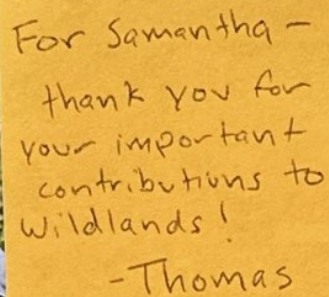 For Samantha -
thank you for
your important
contributions to
Wildlands!
-Thomas